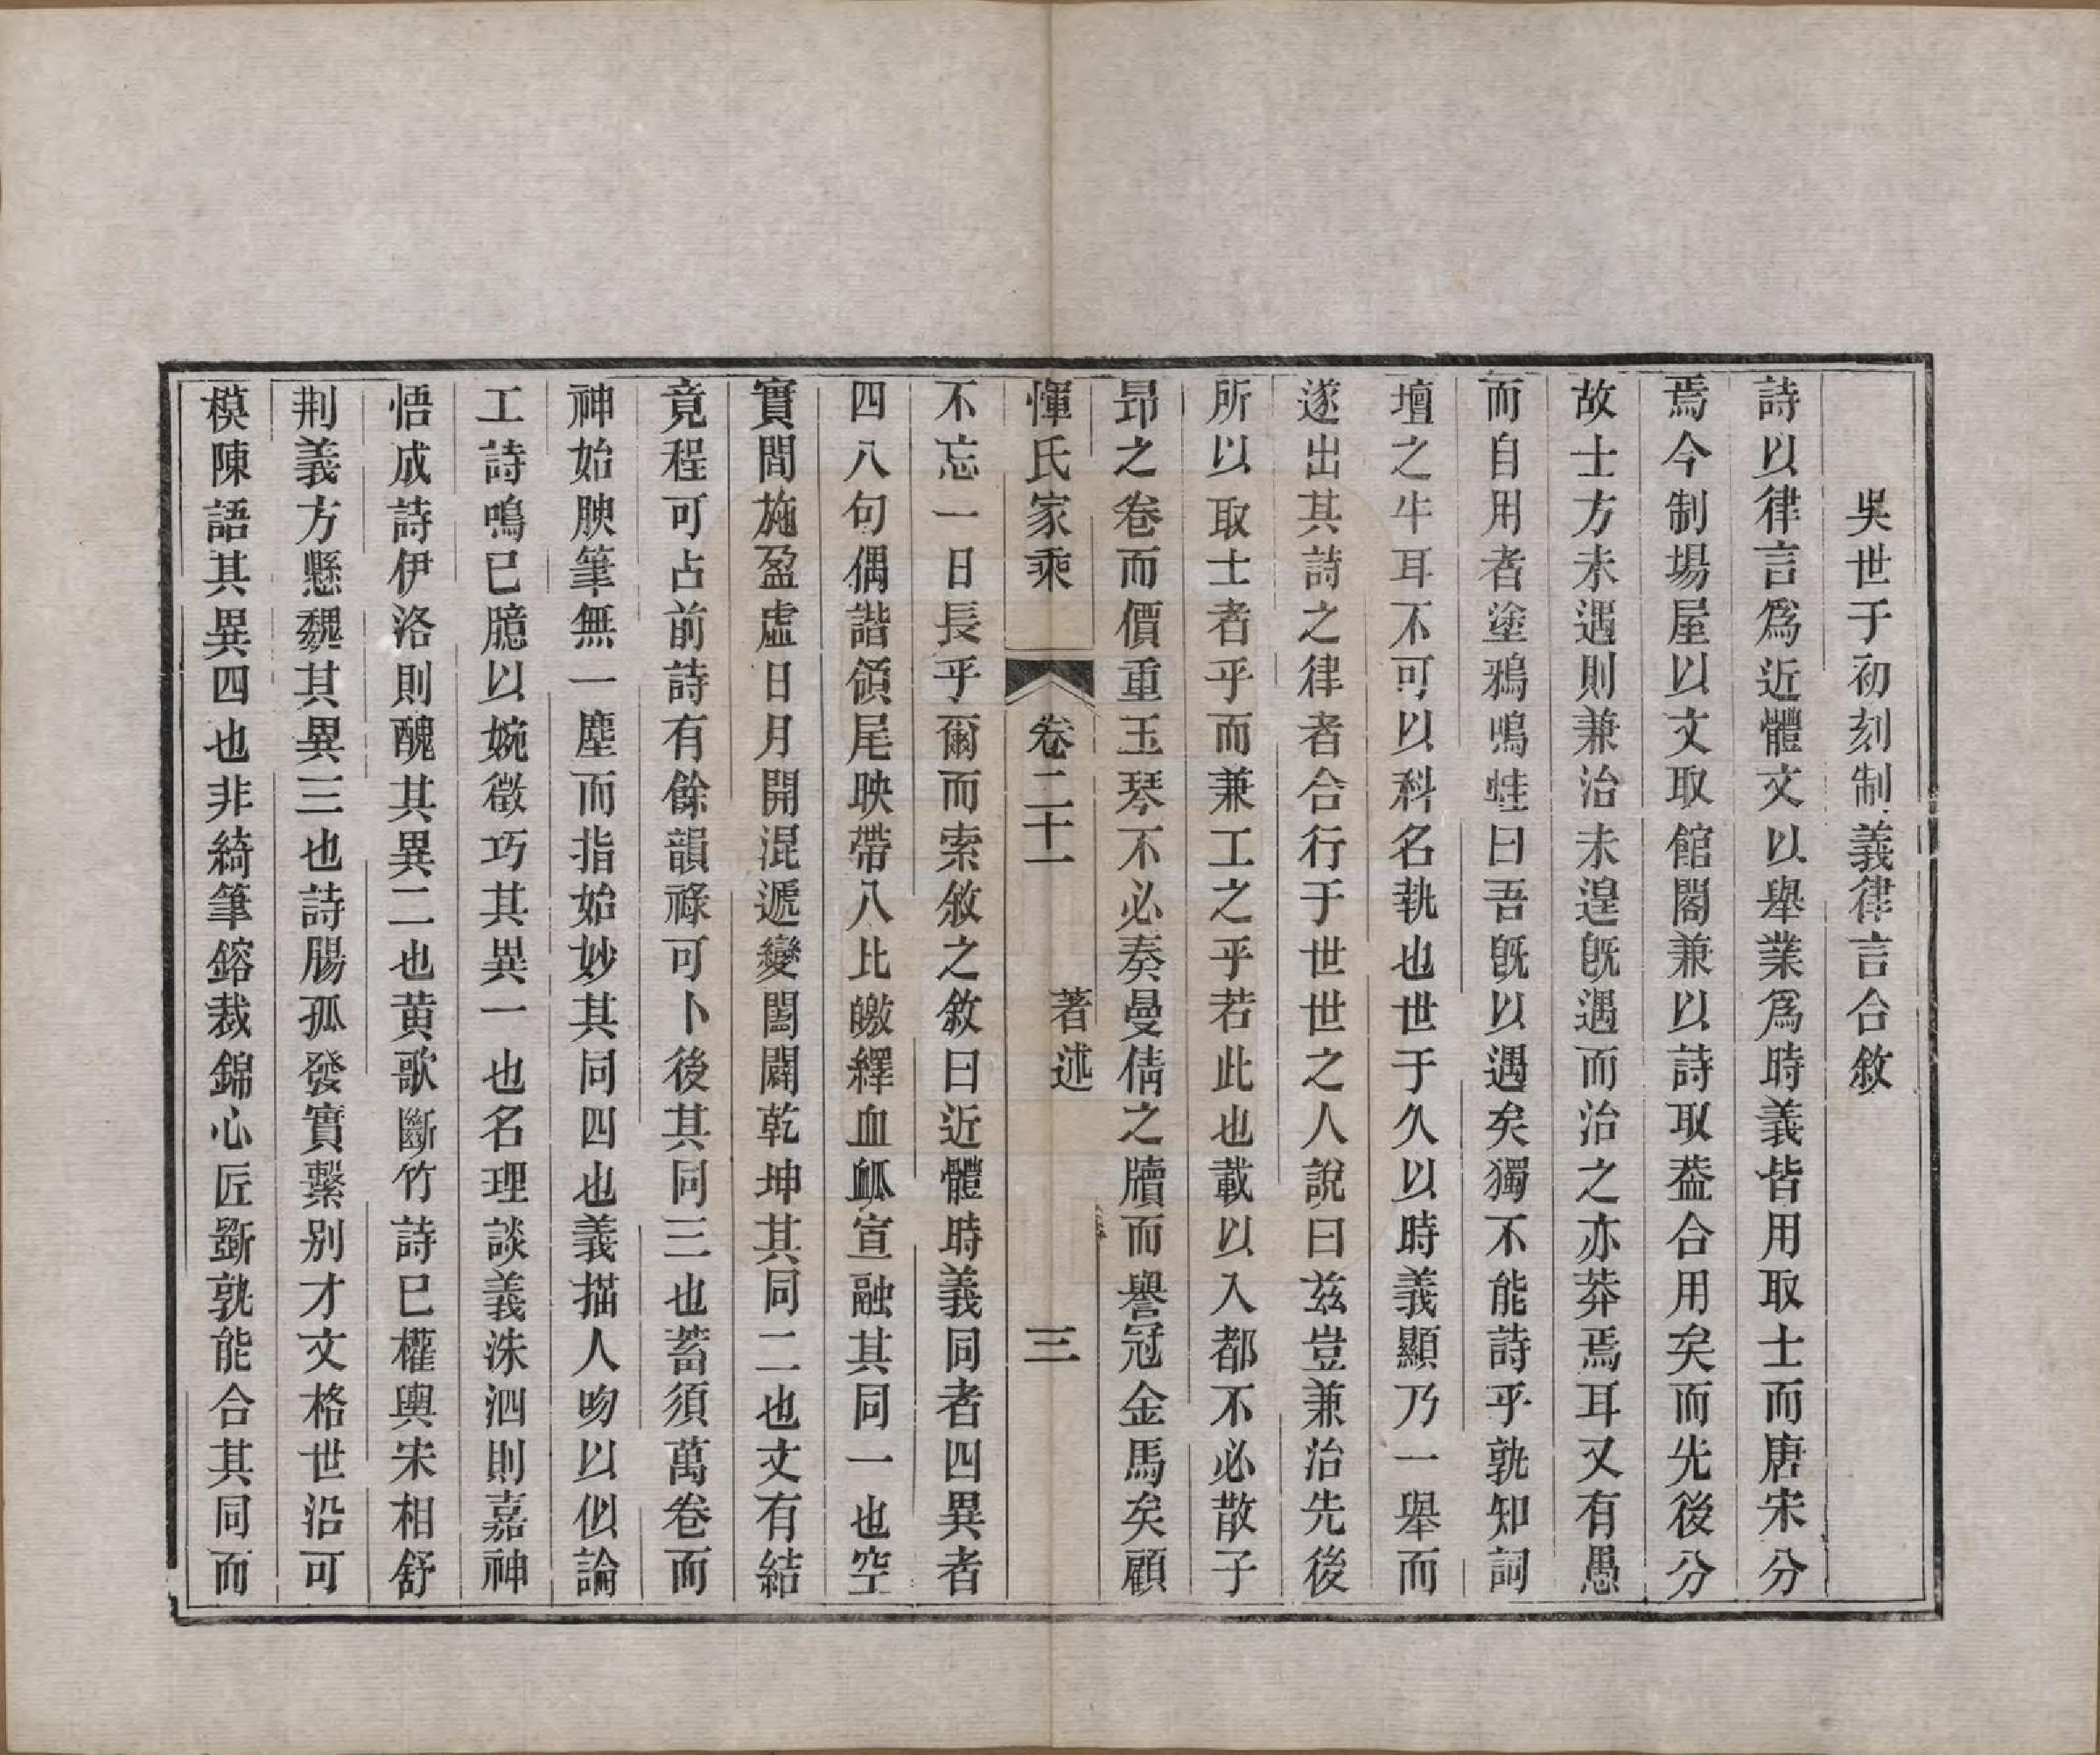 吳世于初刻制義律言合敘
詩以律言爲近體文以舉業爲時義皆用取士而唐宋分
焉今制場屋以文取館閣兼以詩取葢合用矣而先後分
故士方未遇則兼治未遑旣遇而治之亦莽焉耳又有愚
而自用者塗鴉鳴蛙曰吾旣以遇矣獨不能詩乎孰知詞
壇之牛耳不可以科名執也世于久以時義顯乃一舉而
遂出其詩之律者合行于世世之人說曰兹豈兼治先後
所以取士者乎而兼工之乎若此也載以入都不必散子
昂之卷而價重玉琴不必奏曼倩之牘而譽冠金馬矣顧
惲氏家乘 卷二十一 著述 三
不忘一日長乎爾而索敘之敘曰近體時義同者四異者
四八句偶諧頷尾映帶八比繳繹血衇宣融其同一也空
實間施盈虛日月開混遞變闔闢乾坤其同二也文有結
竟程可占前詩有餘韻祿可卜後其同三也蓄須萬卷而
神始腴筆無一塵而指始妙其同四也義描人吻以似論
工詩鳴已臆以婉徵巧其異一也名理談義洙泗則嘉神
悟成詩伊洛則醜其異二也黃歌斷竹詩巳權輿宋相舒
荆義方懸魏其異三也詩腸孤發實繫別才文格世沿可
模陳語其異四也非綺筆鎔裁錦心匠斵孰能合其同而